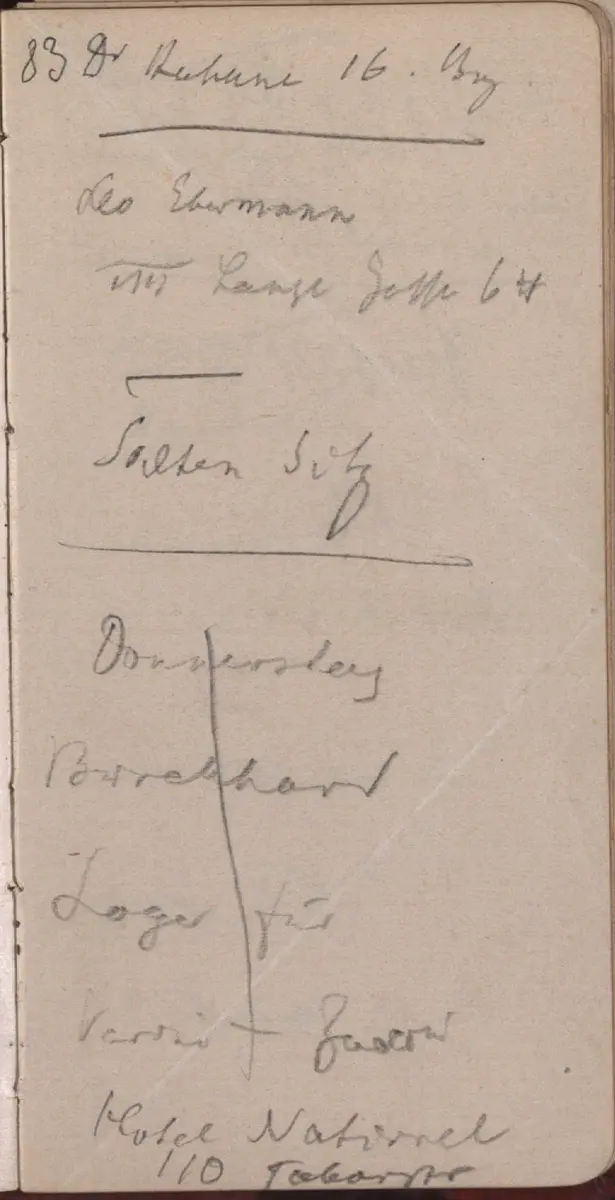 83 Dr 16.
Leo Ebermann
VIII Lange Gasse 64
Salten Sitz
Donnerstag
Burckhard
Loge für
Hotel National
110 Taborstr